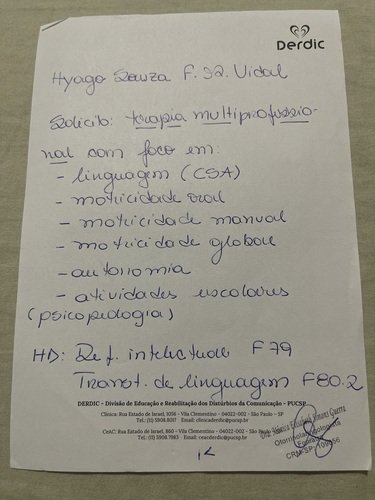 Derdic
Hyago Souza F. S2. Vidal
Solicito: terapia multiprofissio-
nal com foco em:
- linguagem (CSA)
- motricidade oral
- motricidade manual
- motricidade global
- autonomia
- atividades escolares
(psicopedagogia)
HD: Def. intelectual F79
Transt. de linguagem F80.2
DERDIC – Divisão de Educação e Reabilitação dos Distúrbios da Comunicação – PUCSP
Clínica: Rua Estado de Israel, 1056 – Vila Clementino – 04022-002 – São Paulo – SP
Tel.: (11) 5908.8017 Email: clinicaderdic@pucsp.br
CeAC: Rua Estado de Israel, 860 – Vila Clementino – 04022-002 – São Paulo
Tel.: (11) 5908.7983 Email: ceacderdic@pucsp.br
Otorrinolaringologista
CRM-SP